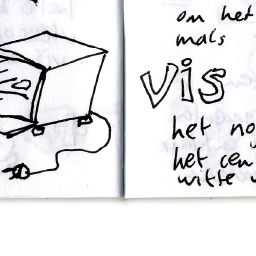 om het
mals
vis
het no
het cen
witte v